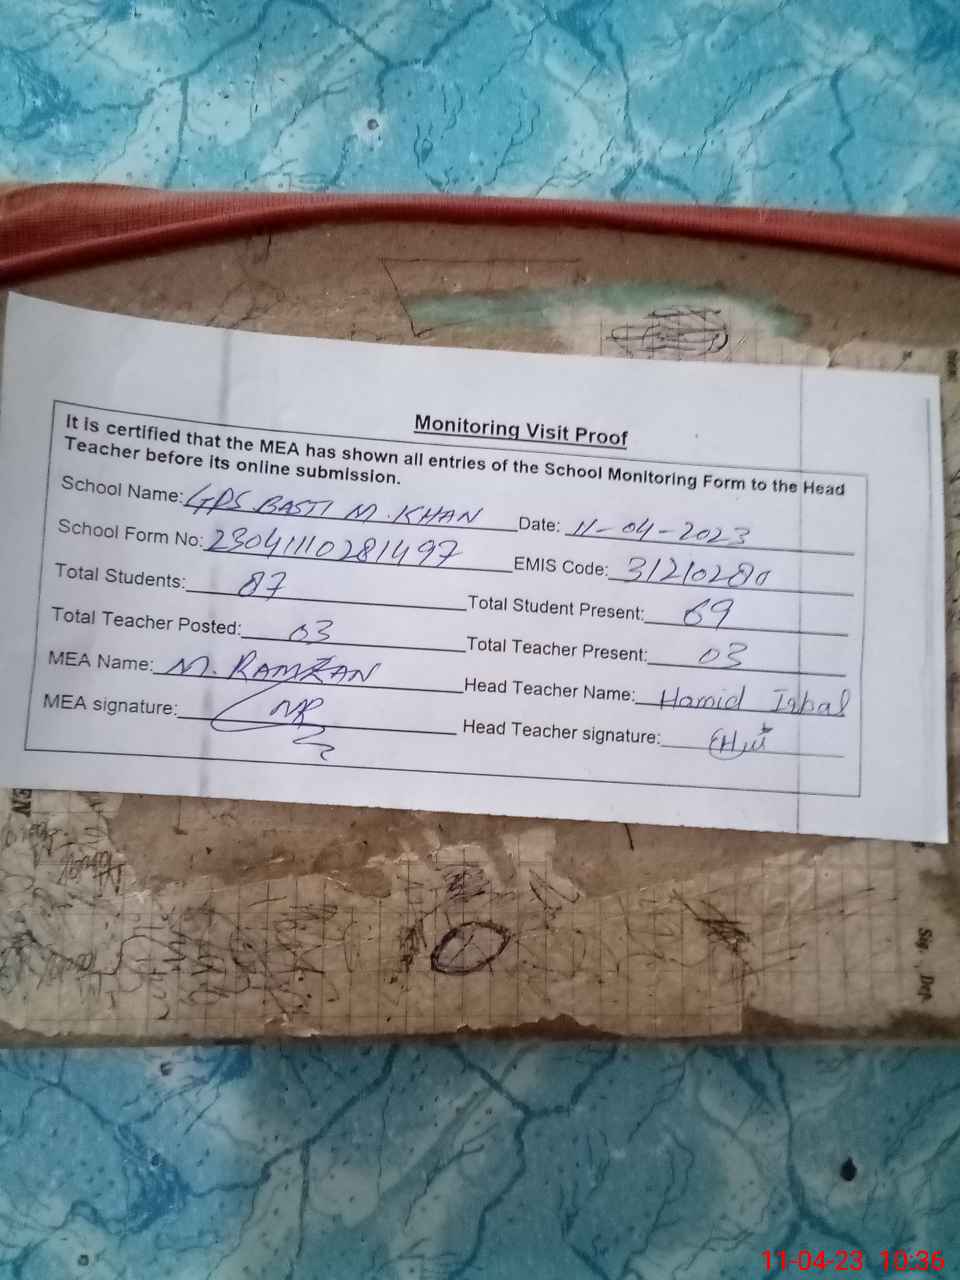 Monitoring Visit Proof
It is certified that the MEA has shown all entries of the School Monitoring Form to the Head
Teacher before its online submission.
School Name: GPS BASTI M. KHAN Date: 11-04-2023
School Form No: 23041110281497 EMIS Code: 31210280
Total Students: 87 Total Student Present: 69
Total Teacher Posted: 03 Total Teacher Present: 03
MEA Name: M. RAMZAN Head Teacher Name: Hamid Iqbal
MEA signature: MR Head Teacher signature:
Sig Dep
11-04-23 10:36